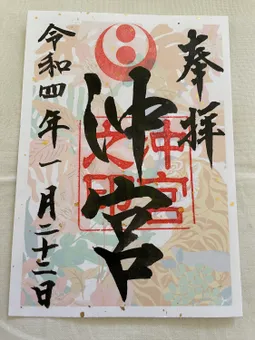 奉拝
沖宮
沖宮
令和四年一月二十二日